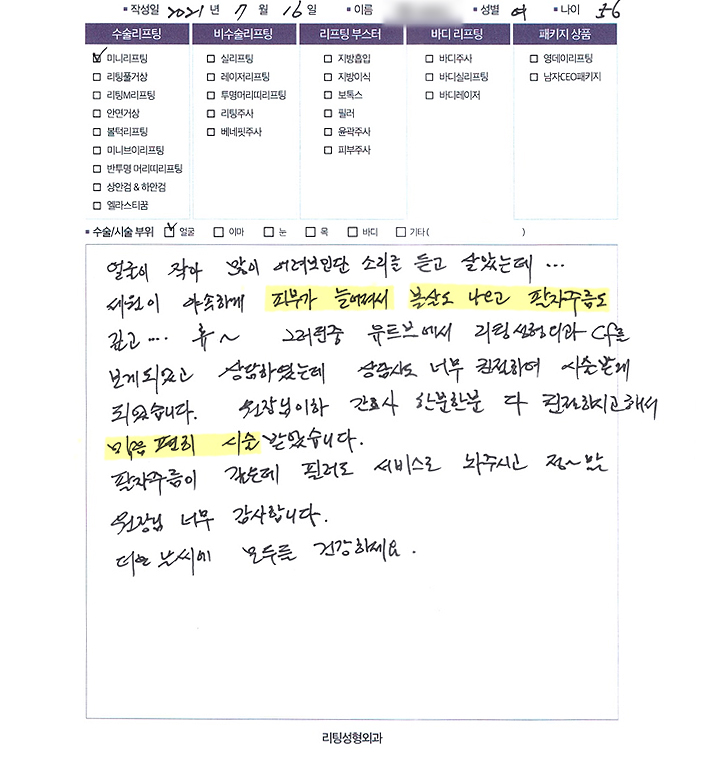 ▪ 작성일 2021 년 7 월 16 일 ▪ 이름 ▪ 성별 여 ▪ 나이 56
수술리프팅 비수술리프팅 리프팅 부스터 바디 리프팅 패키지 상품
☑ 미니리프팅 □ 실리프팅 □ 지방흡입 □ 바디주사 □ 영데이리프팅
□ 리팅풀거상 □ 레이저리프팅 □ 지방이식 □ 바디실리프팅 □ 남자CEO패키지
□ 리팅M리프팅 □ 투명머리띠리프팅 □ 보톡스 □ 바디레이저
□ 안면거상 □ 리팅주사 □ 필러
□ 볼턱리프팅 □ 베네핏주사 □ 윤곽주사
□ 미니브이리프팅 □ 피부주사
□ 반투명 머리띠리프팅
□ 상안검 & 하안검
□ 엘라스티꿈
▪ 수술/시술 부위 ☑ 얼굴 □ 이마 □ 눈 □ 목 □ 바디 □ 기타 ( )
얼굴이 작아 많이 어려보인단 소리를 듣고 살았는데 ...
세월이 야속하게 피부가 늘어져서 볼살도 나오고 팔자주름도
깊고 .... 휴~ 그러던중 유트브에서 리팅성형외과 CF를
보게되었고 상담하였는데 상담사도 너무 친절하여 시술받게
되었습니다. 원장님이하 간호사 한분한분 다 친절하시고해서
마음 편히 시술 받았습니다.
팔자주름이 깊은데 필러도 서비스로 놔주시고 정~말
원장님 너무 감사합니다.
더운 날씨에 모두들 건강하세요.
리팅성형외과